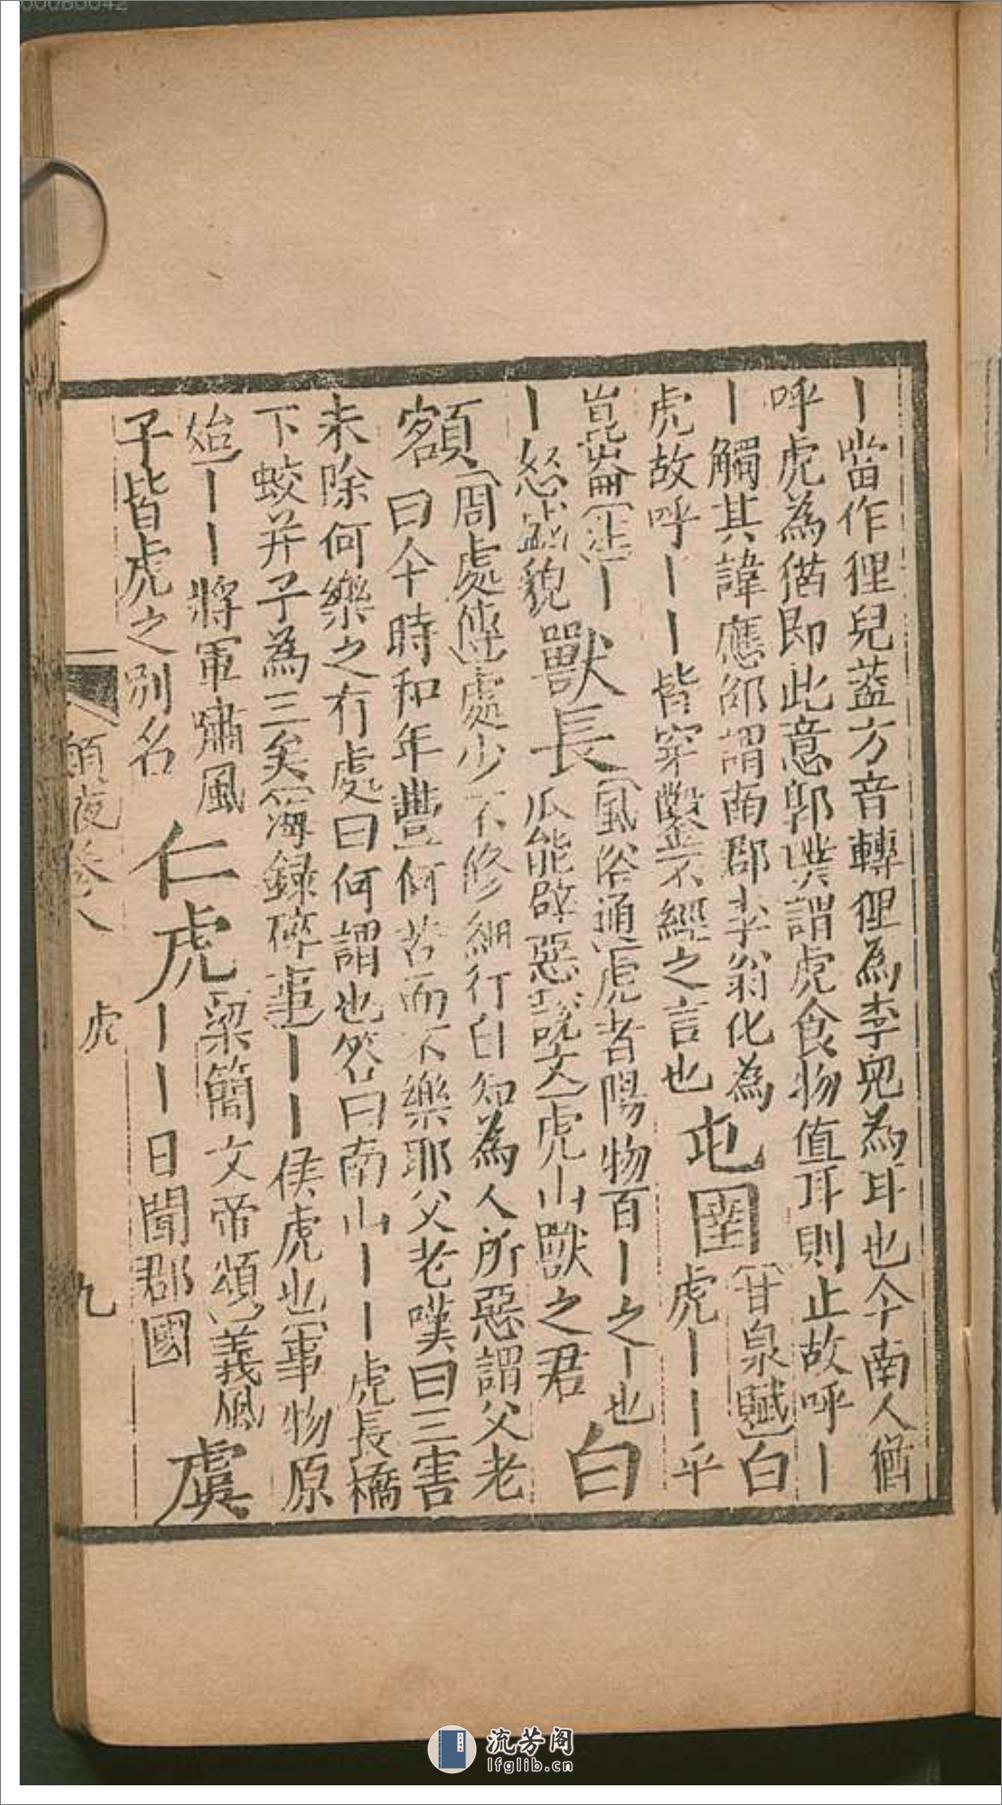 丨當作狸兒葢方音轉狸為李兒為耳也今南人猶
呼虎為猫即此意郭璞謂虎食物值耳則止故呼丨
丨觸其諱應邵謂南郡李翁化為
虎故呼丨丨皆穿鑿不經之言也 屯圉〔甘泉賦〕白虎丨丨乎
崑崙〔注〕丨
丨怒盛貌 獸長〔風俗通〕虎者陽物百丨之丨也
瓜能辟惡〔說文〕虎山獸之君 白
額〔周處傳〕處少不修細行自知為人所惡謂父老
曰今時和年豐何苦而不樂耶父老嘆曰三害
未除何樂之有處曰何謂也答曰南山丨丨虎長橋
下蛟并子為三矣〔海錄碎事〕丨丨侯虎也〔事物原
始〕丨丨將軍嘯風
子皆虎之別名 仁虎〔梁簡文帝頌〕義感
丨丨丨日聞郡國 虞
卷八 虎 九
流芳阁
lfglib.cn